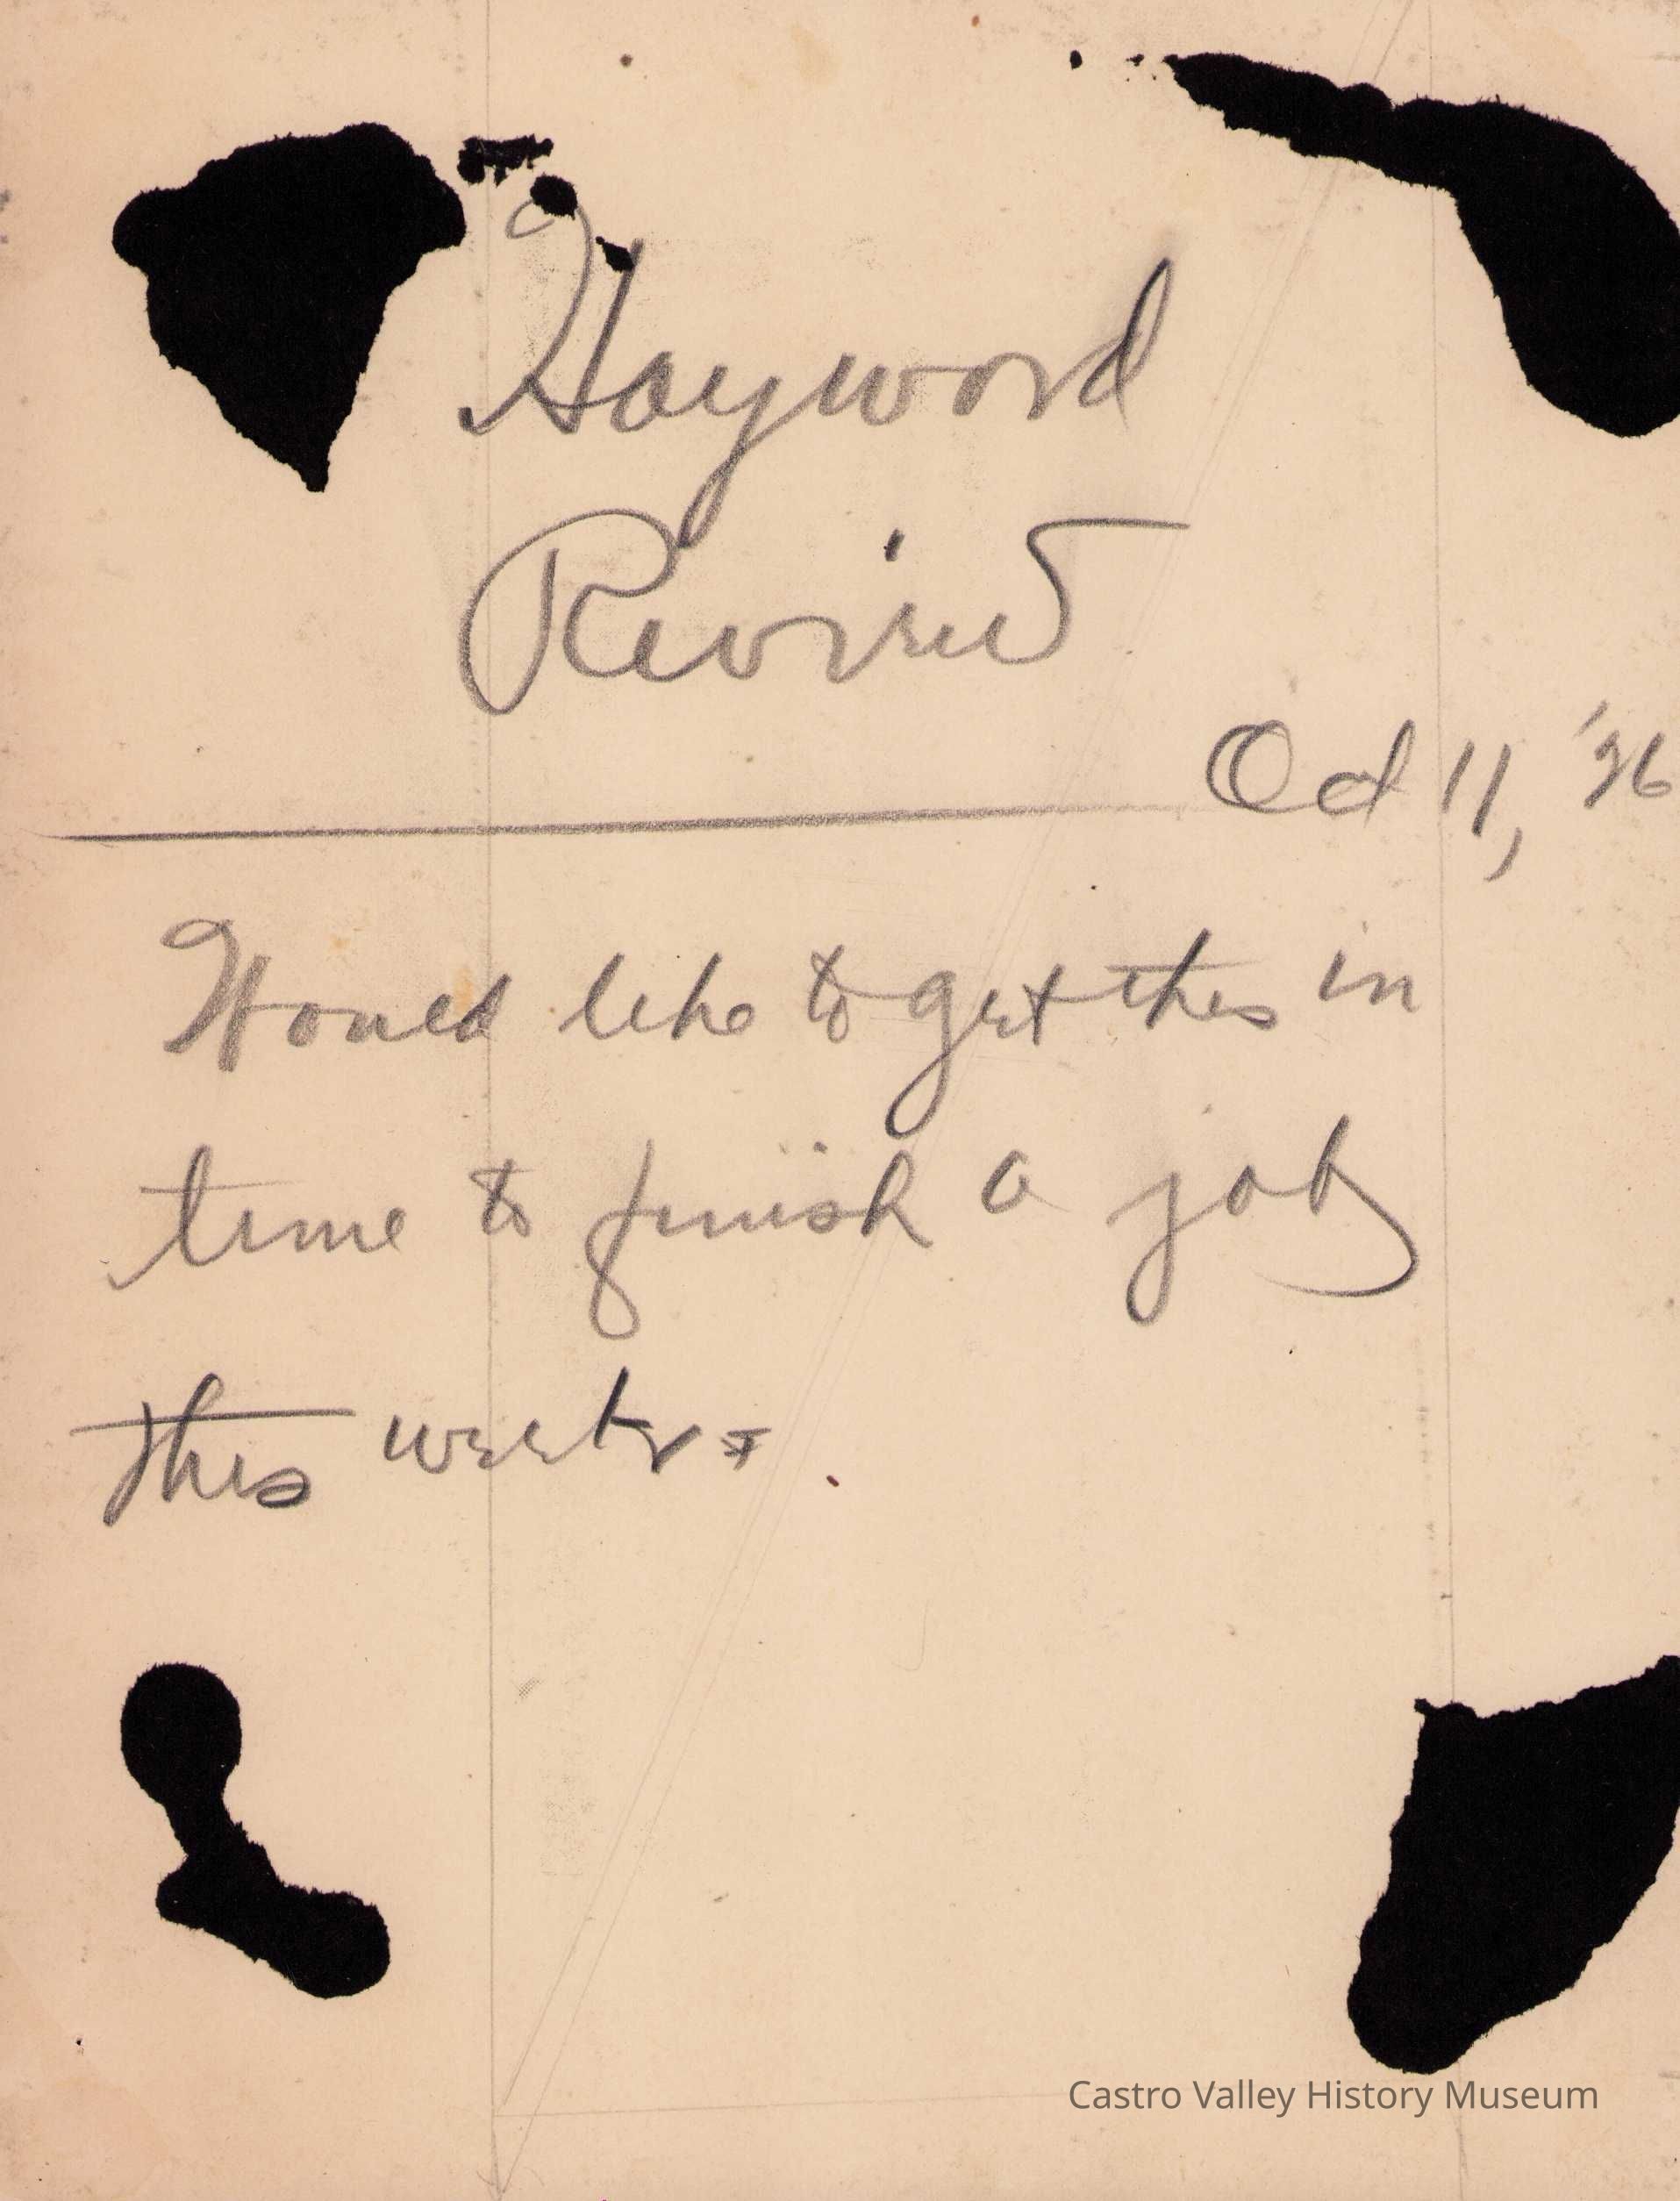 Hayword
Review
Oct 11, '36
Would like to get this in
time to finish a job
this week.
Castro Valley History Museum